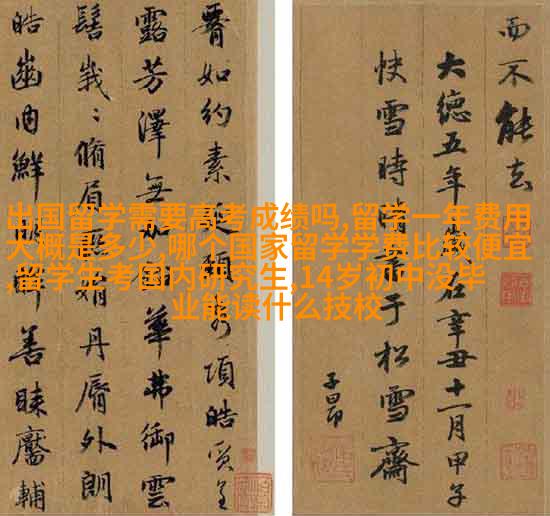 出国留学需要高考成绩吗,留学一年费用
大概是多少,哪个国家留学学费比较便宜
,留学生考国内研究生,14岁初中没毕
业能读什么技校
而不能去
大德五年在辛丑十一月甲子
快雪時晴于松雪齋
子昂
如約素延頸秀項皓質呈
露芳澤無加華弗御雲
髻峩〻脩眉娟丹脣外朗
皓齒内鮮眸善睞靨輔